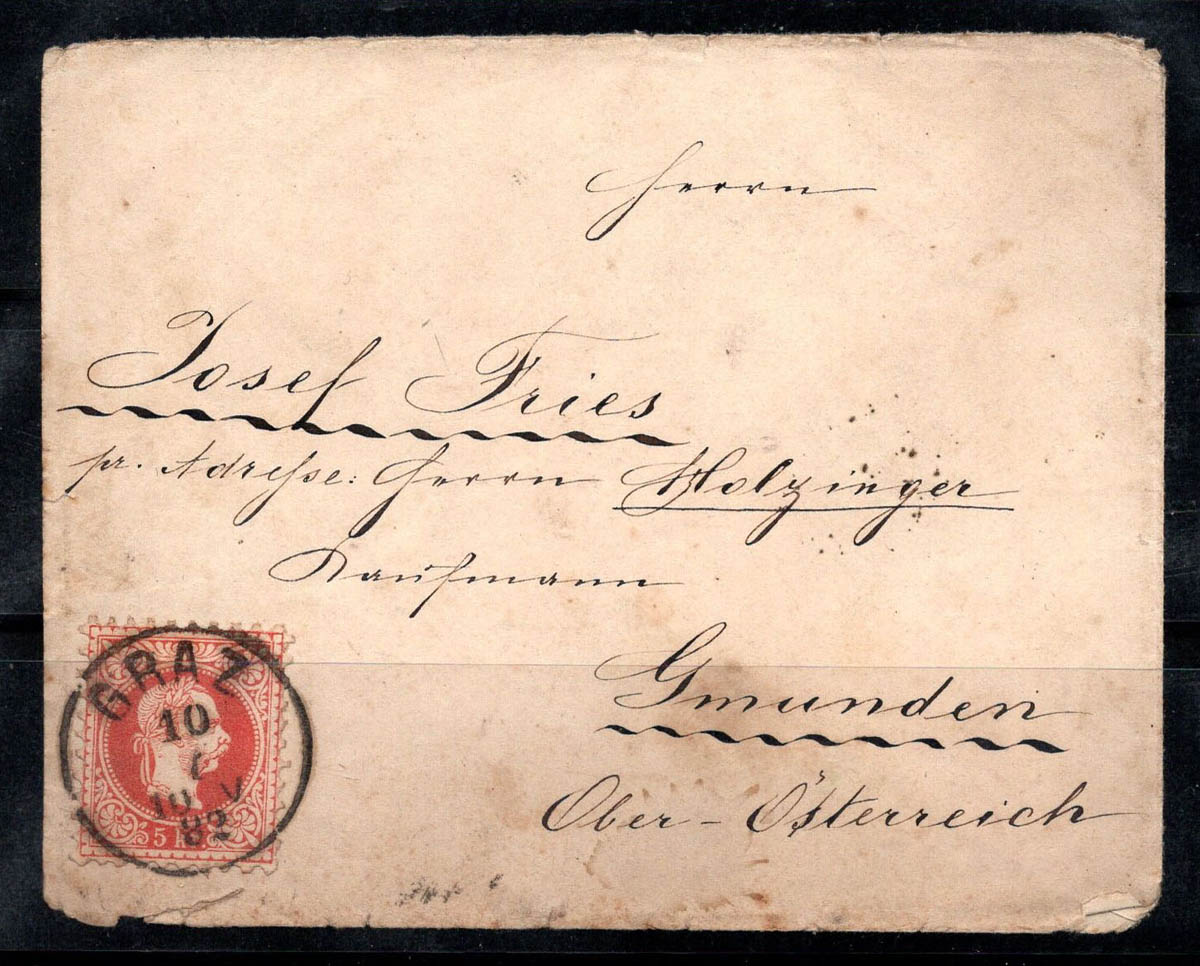 Herrn
Josef Fries
pr. Adresse: Herrn Holzinger
Kaufmann
Gmunden
Ober-Österreich
GRAZ
10
10 V
82
5 Kr.